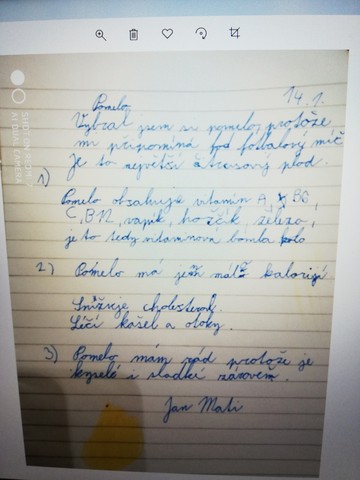 14.1.
Pomelo
Vybral jsem si pomelo, protože
mi připomíná fotbalový míč
Je to největší citrusový plod.
1)
Pomelo obsahuje vitamin A, B6,
C, B12, vápík, hořčík, železo,
je to tedy vitamínová bomba
2) Pomelo má jen málo kalorijí
Snižuje cholesterol.
Léčí kašel a otoky.
3) Pomelo mám rád protože je
kyselé i sladké zárovem.
Jan Mati
SHOT ON REDMI
AI DUAL CAMERA